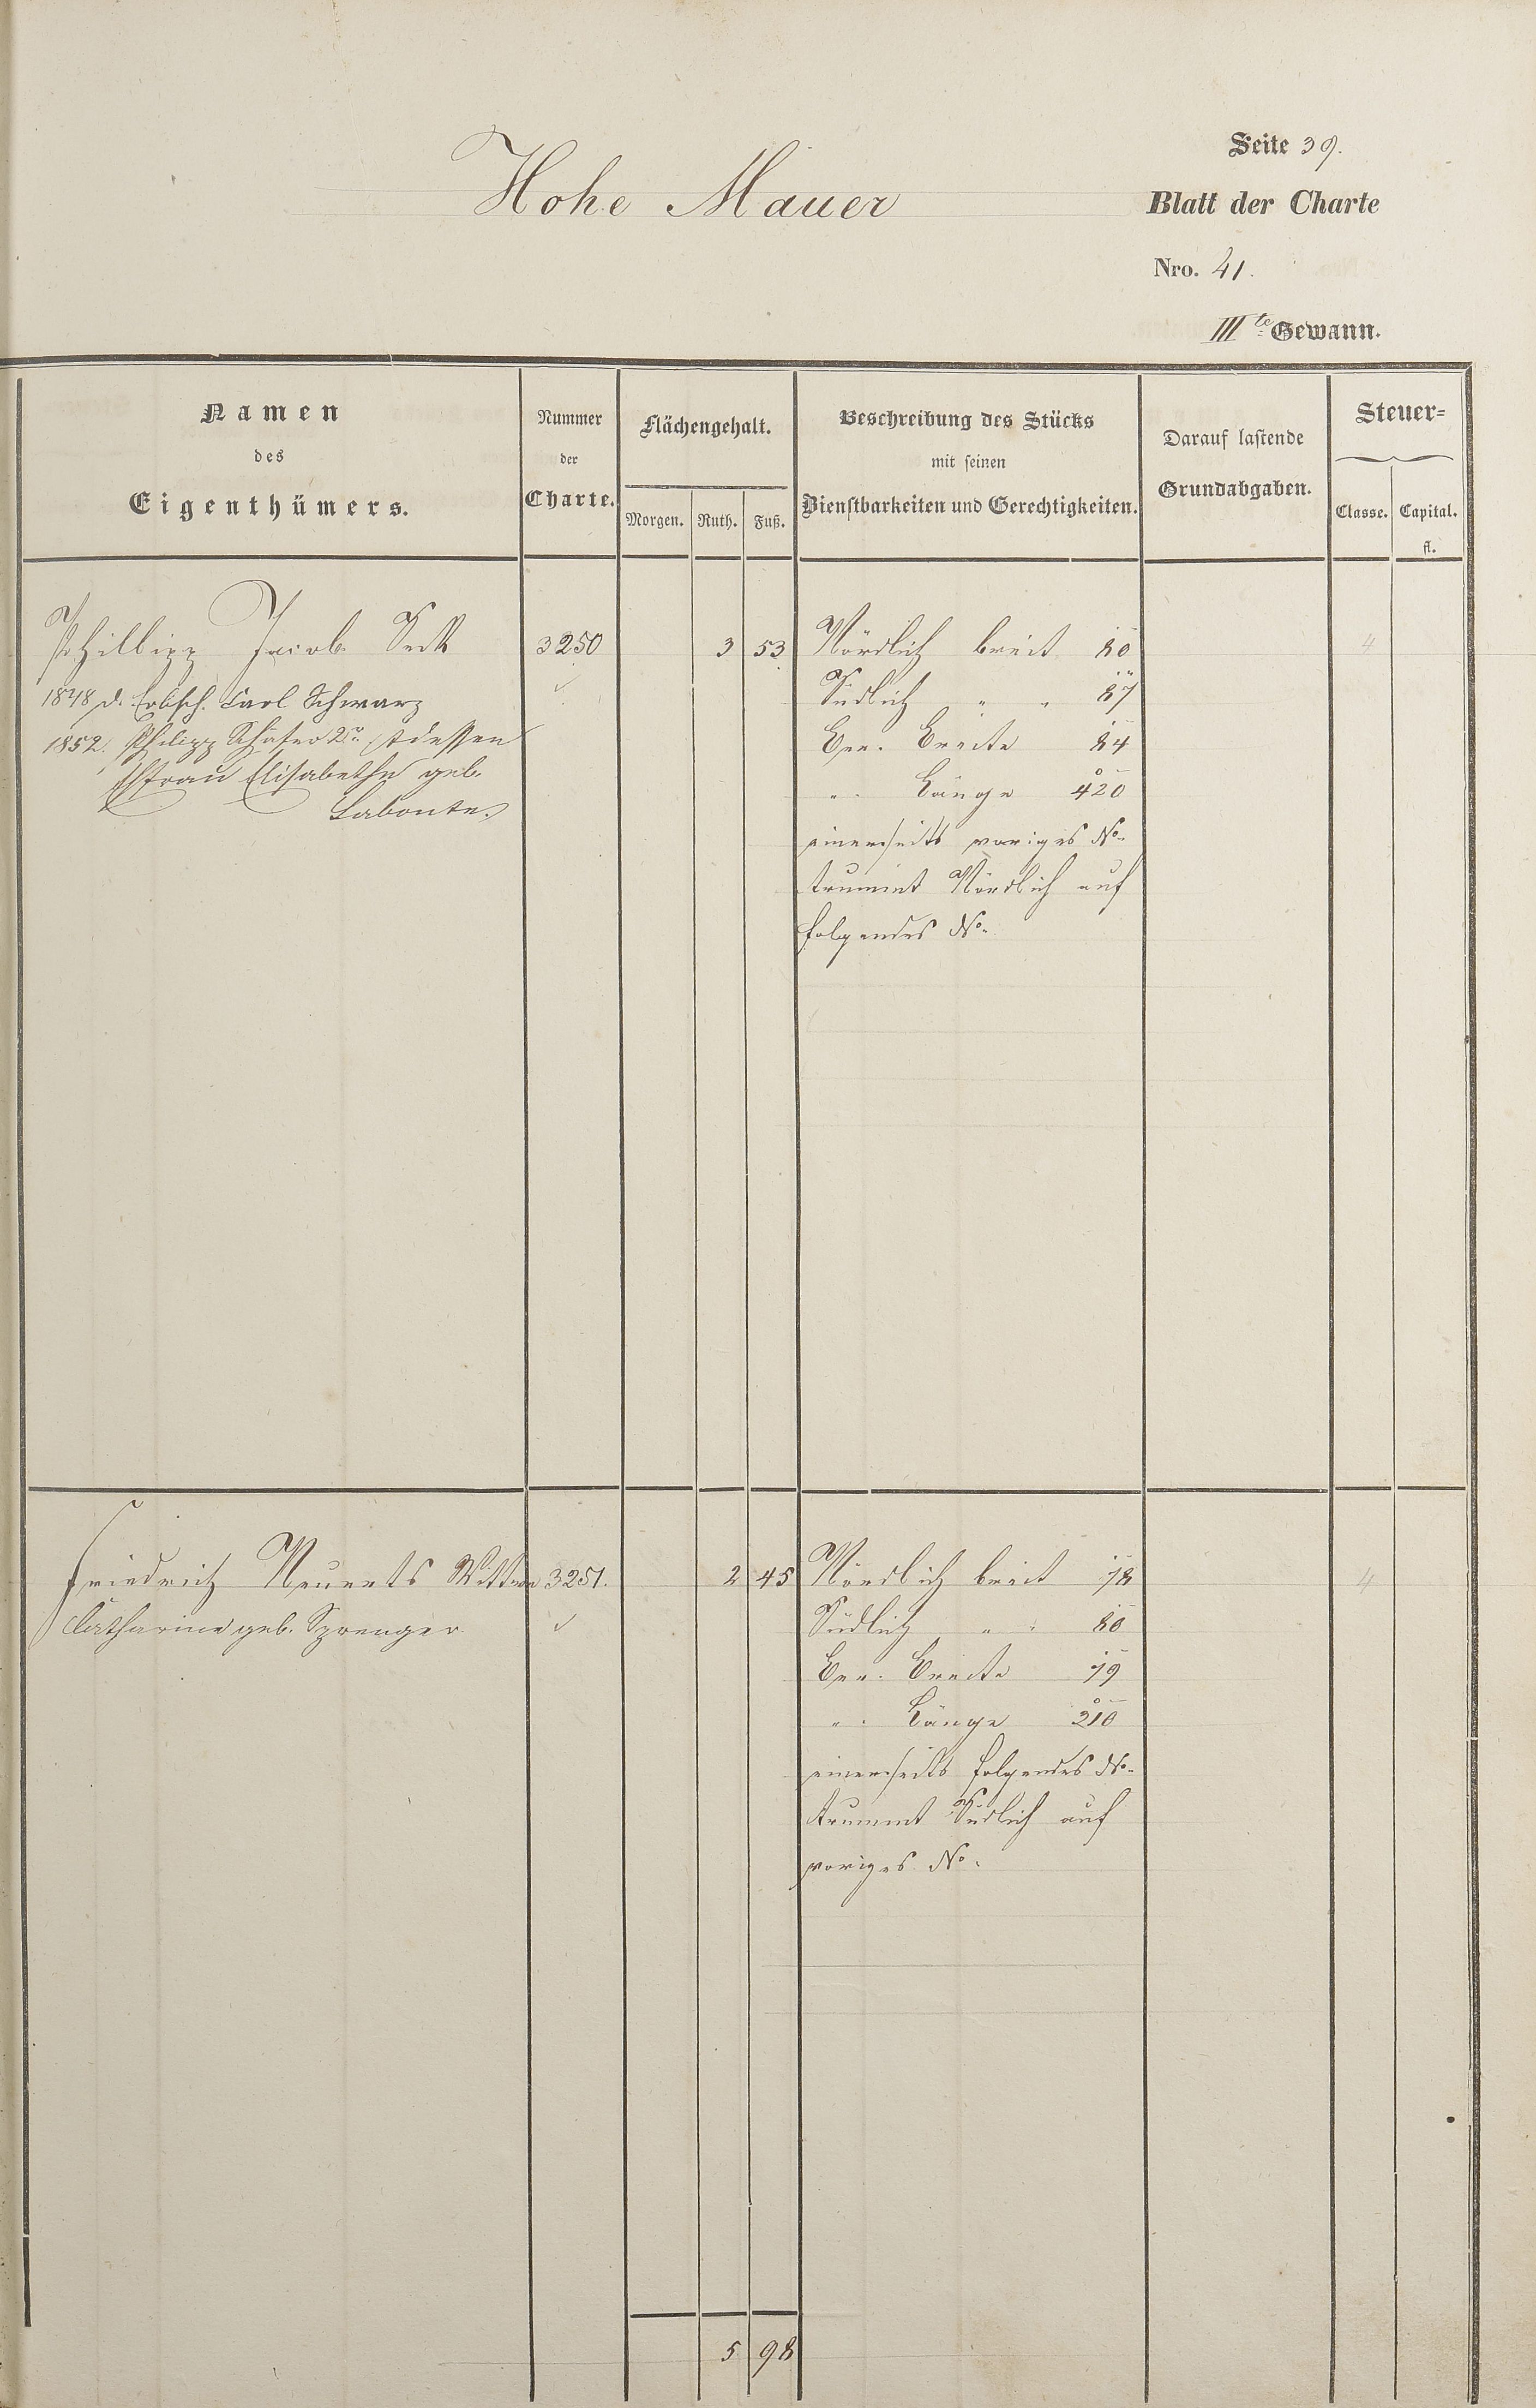 Seite 39.
Hohe Mauer
Blatt der Charte
Nro. 41.
III te Gewann.
Namen
des
Eigenthümers.
Nummer
der
Charte.
Flächengehalt.
Morgen. Ruth. Fuß.
Beschreibung des Stücks
mit seinen
Dienstbarkeiten und Gerechtigkeiten.
Darauf lastende
Grundabgaben.
Steuer-
Classe. Capital.
fl.
Philipp Jacob 3250 3 53 Nördlich breit 80 4
1848 d. Erbsch. Carl Schwarz Südlich " " 87
1852. Philipp Schäfer 2r dessen Ger. Breite 84
Ehfrau Elisabetha geb. " Länge 420
Labonte.
einerseits voriges No.
trummt Nördlich auf
folgendes No.
Friedrich Wittwe 3251. 2 45 Nördlich breit 78 4
Catharine geb. Sprenger Südlich " " 80
Ger. Breite 79
" Länge 310
einerseits folgendes No.
trummt Südlich auf
voriges No.
5 98